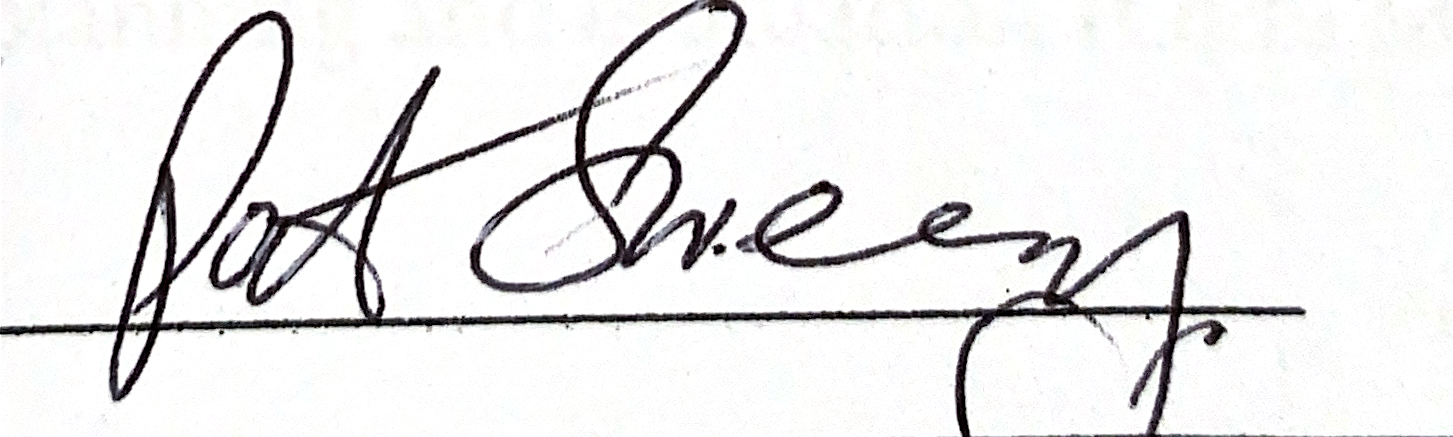 Pat Sweeny